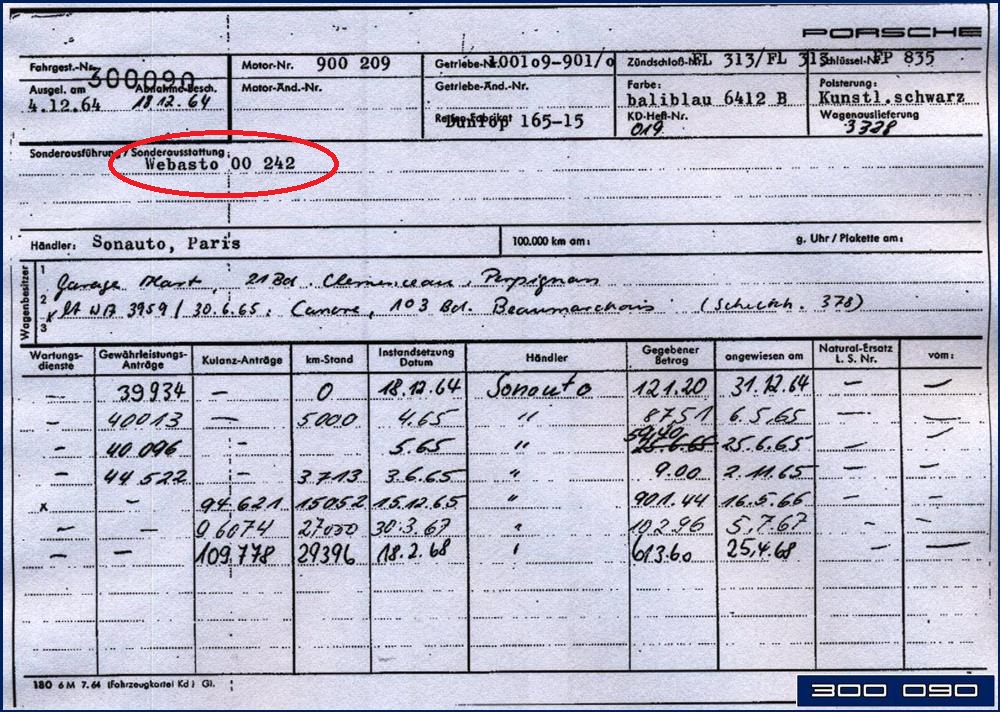 PORSCHE
Fahrgest.-Nr. 300090 Motor-Nr. 900 209 Getriebe-Nr. 100109-901/0 Zündschloß-Nr. FL 313/FL 313 Schlüssel-Nr. FP 835
Ausgel. am 4.12.64 Abnahme-Besch. 18.12.64 Motor-Änd.-Nr. Getriebe-Änd.-Nr. Farbe: baliblau 6412 B Polsterung: Kunstl.schwarz
Reifen-Fabrikat Dunlop 165-15 KD-Heft-Nr. 019 Wagenauslieferung 3328
Sonderausführung / Sonderausstattung:
Webasto 00 242
Händler: Sonauto, Paris 100.000 km am: g. Uhr / Plakette am:
Wagenbesitzer
1 Garage 21 Bd. Clemenceau, Perpignan
2 lt WA 3959 / 30.6.65: 103 Bd. Beaumarchais (Schultch. 378)
3
Wartungsdienste Gewährleistungs-Anträge Kulanz-Anträge km-Stand Instandsetzung Datum Händler Gegebener Betrag angewiesen am Natural-Ersatz L. S. Nr. vom:
— 39934 — 0 18.12.64 Sonauto 121.20 31.12.64 — —
— 40013 — 5000 4.65 " 87.51 6.5.65 — —
— 40096 - 5.65 " 59,40 25.6.65 25.6.65 — —
— 44522 — 3713 3.6.65 " 9.00 2.11.65 — —
x - 94621 15052 15.12.65 " 901.44 16.5.66 — —
— — 96074 27000 30.3.67 " 102.96 5.7.67 - -
— — 109.778 29396 18.2.68 " 613.60 25.4.68 — —
180 6 M 7. 64 (Fahrzeugkartei Kd) Gl.
300 090